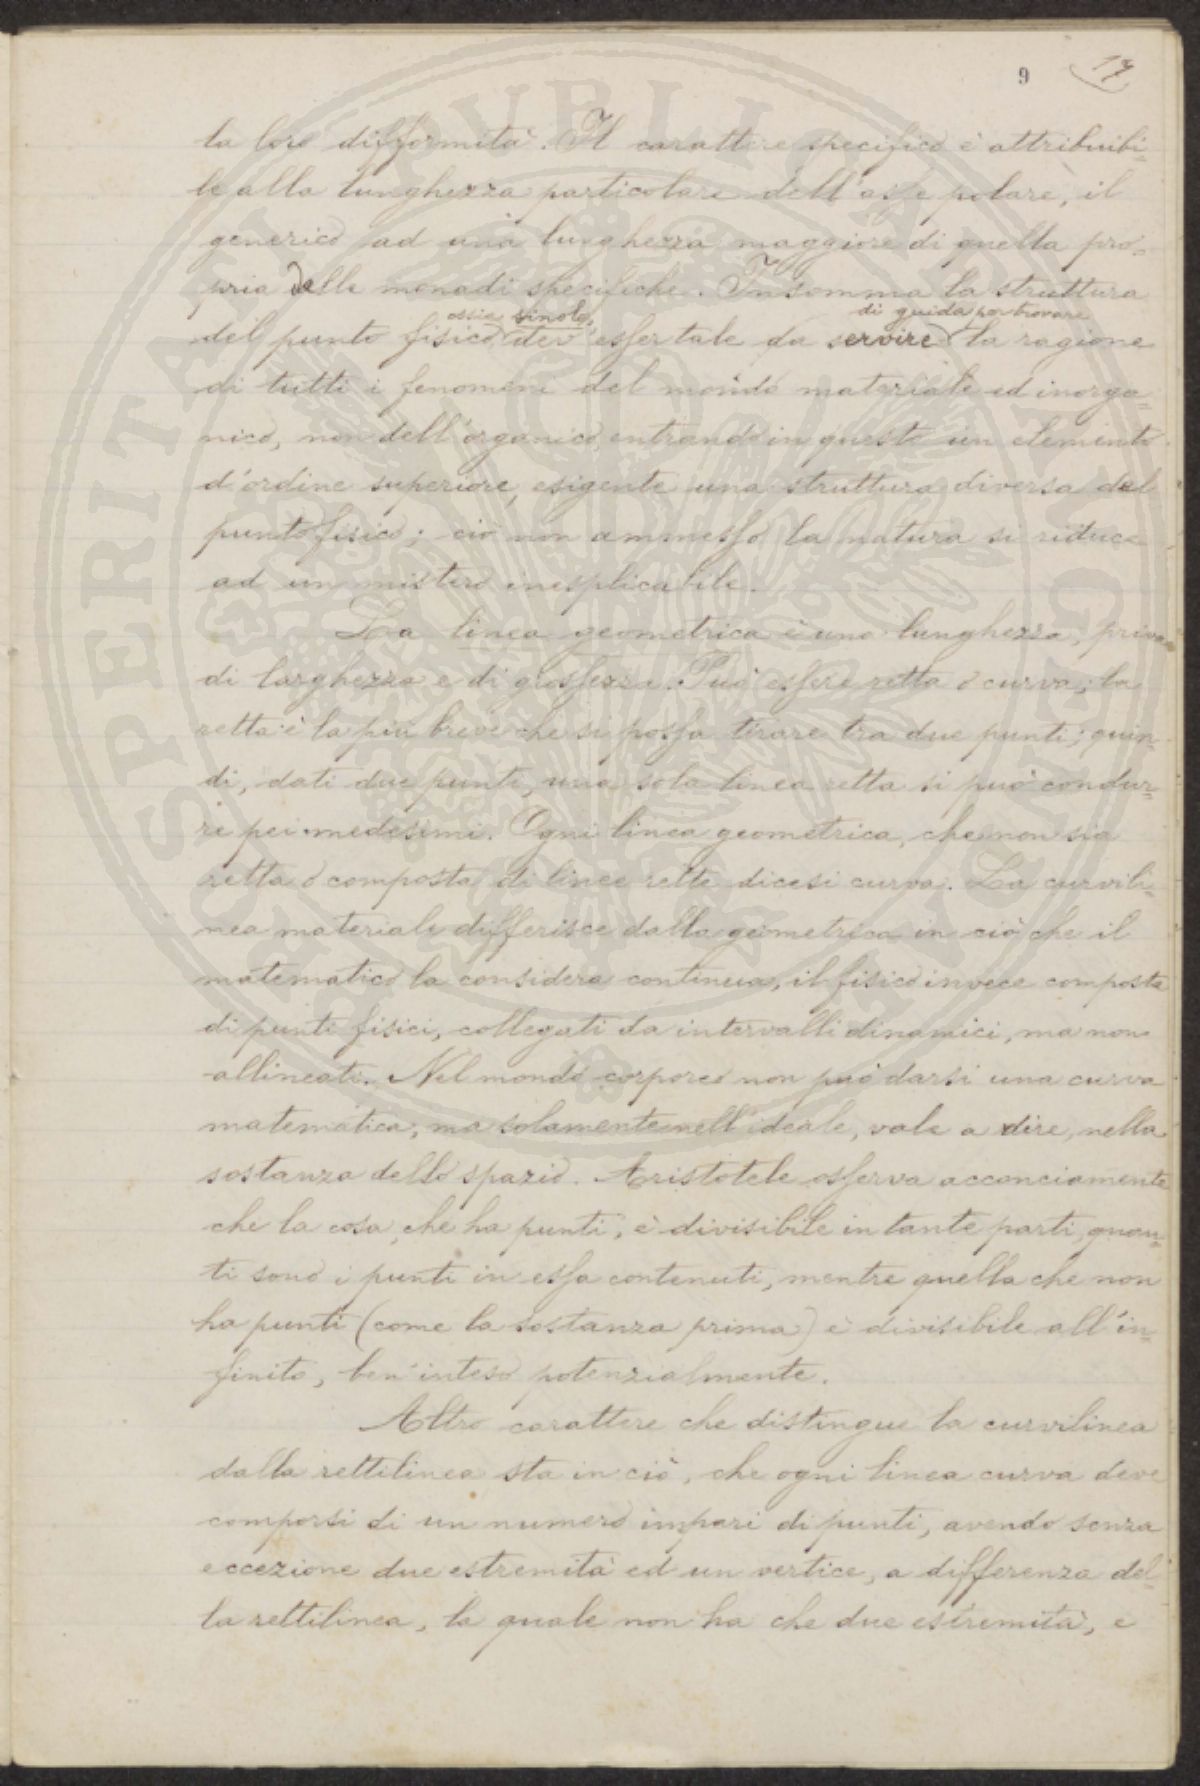 9 17
la loro difformità. Il carattere specifico è attribuibi-
le alla lunghezza particolare dell'asse polare, il
generico ad una lunghezza maggiore di quella pro-
pria delle monadi specifiche. Insomma la struttura
ossia sinolo, di guida per trovare
del punto fisico dev'esser tale da servire la ragione
di tutti i fenomeni del mondo materiale ed inorga-
nico, non dell'organico, entrando in questo un elemento
d'ordine superiore, esigente una struttura diversa del
punto fisico; ciò non ammesso la natura si riduce
ad un mistero inesplicabile.
La linea geometrica è una lunghezza, priva
di larghezza e di grossezza. Può essere retta o curva; la
retta è la più breve che si possa tirare tra due punti; quin-
di, dati due punti, una sola linea retta si può condur-
re pei medesimi. Ogni linea geometrica, che non sia
retta o composta di linee rette dicesi curva. La curvili-
nea materiale differisce dalla geometrica in ciò che il
matematico la considera continua, il fisico invece composta
di punti fisici, collegati da intervalli dinamici, ma non
allineati. Nel mondo corporeo non può darsi una curva
matematica, ma solamente nell'ideale, vale a dire, nella
sostanza dello spazio. Aristotele osserva acconciamente
che la cosa, che ha punti, è divisibile in tante parti, quan-
ti sono i punti in essa contenuti, mentre quella che non
ha punti (come la sostanza prima) è divisibile all'in-
finito, ben inteso potenzialmente.
Altro carattere che distingue la curvilinea
dalla rettilinea sta in ciò, che ogni linea curva deve
comporsi di un numero impari di punti, avendo senza
eccezione due estremità ed un vertice, a differenza del-
la rettilinea, la quale non ha che due estremità, e
SPERITATI PVBLICAE